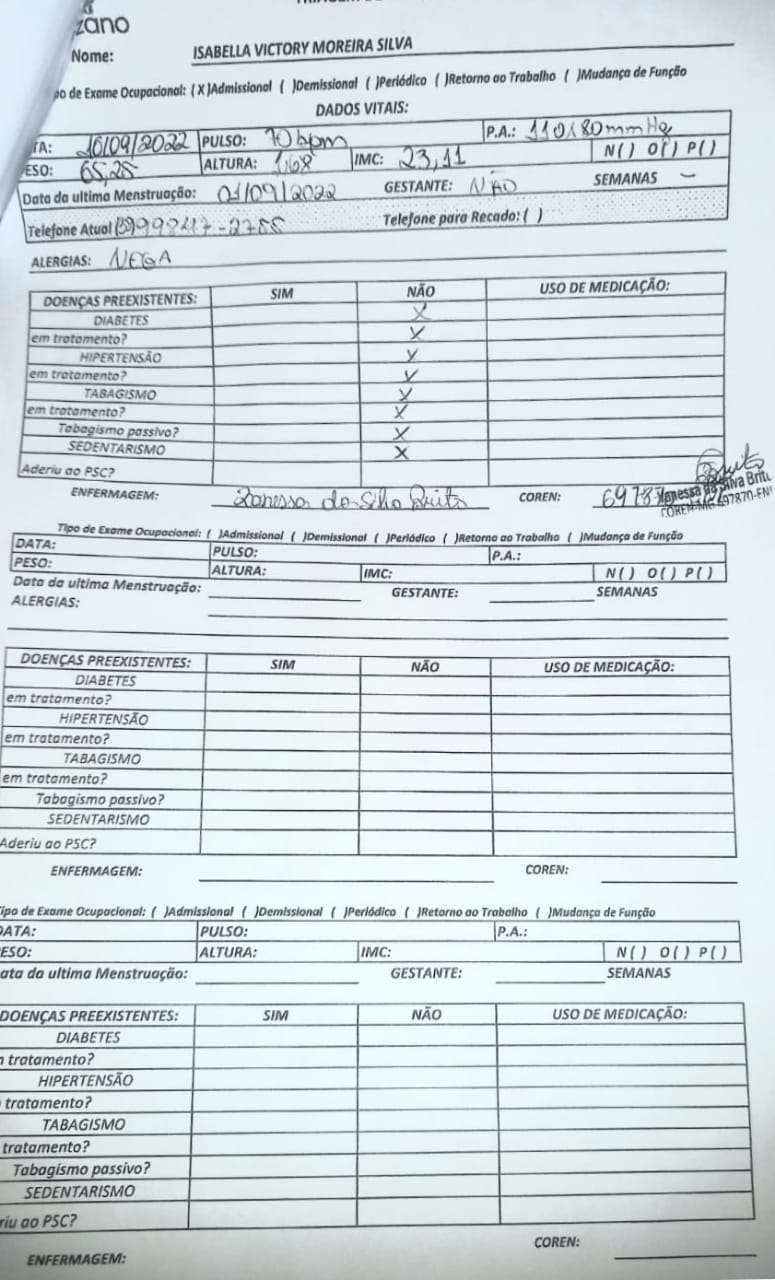 zano
Nome: ISABELLA VICTORY MOREIRA SILVA
po de Exame Ocupacional: ( X )Admissional ( )Demissional ( )Periódico ( )Retorno ao Trabalho ( )Mudança de Função
DADOS VITAIS:
TA: 10/09/2022 PULSO: 70 bpm P.A.: 110/80 mmHg
ESO: 65,25 ALTURA: 1,68 IMC: 23,11 N ( ) O ( ) P ( )
Data da ultima Menstruação: 01/09/2022 GESTANTE: NÃO SEMANAS –
Telefone Atual Telefone para Recado: ( )
ALERGIAS: NEGA
DOENÇAS PREEXISTENTES: SIM NÃO USO DE MEDICAÇÃO:
DIABETES X
em tratamento? X
HIPERTENSÃO X
em tratamento? X
TABAGISMO X
em tratamento? X
Tabagismo passivo? X
SEDENTARISMO X
Aderiu ao PSC?
ENFERMAGEM: Vanessa da Silva Brito COREN: 6978
Vanessa da Silva Brito
COREN-MG 697870-EN
Tipo de Exame Ocupacional: ( )Admissional ( )Demissional ( )Periódico ( )Retorno ao Trabalho ( )Mudança de Função
DATA: PULSO: P.A.:
PESO: ALTURA: IMC: N ( ) O ( ) P ( )
Data da ultima Menstruação: GESTANTE: SEMANAS
ALERGIAS:
DOENÇAS PREEXISTENTES: SIM NÃO USO DE MEDICAÇÃO:
DIABETES
em tratamento?
HIPERTENSÃO
em tratamento?
TABAGISMO
em tratamento?
Tabagismo passivo?
SEDENTARISMO
Aderiu ao PSC?
ENFERMAGEM: COREN:
Tipo de Exame Ocupacional: ( )Admissional ( )Demissional ( )Periódico ( )Retorno ao Trabalho ( )Mudança de Função
DATA: PULSO: P.A.:
ESO: ALTURA: IMC: N ( ) O ( ) P ( )
ata da ultima Menstruação: GESTANTE: SEMANAS
DOENÇAS PREEXISTENTES: SIM NÃO USO DE MEDICAÇÃO:
DIABETES
m tratamento?
HIPERTENSÃO
tratamento?
TABAGISMO
tratamento?
Tabagismo passivo?
SEDENTARISMO
riu ao PSC?
ENFERMAGEM: COREN: